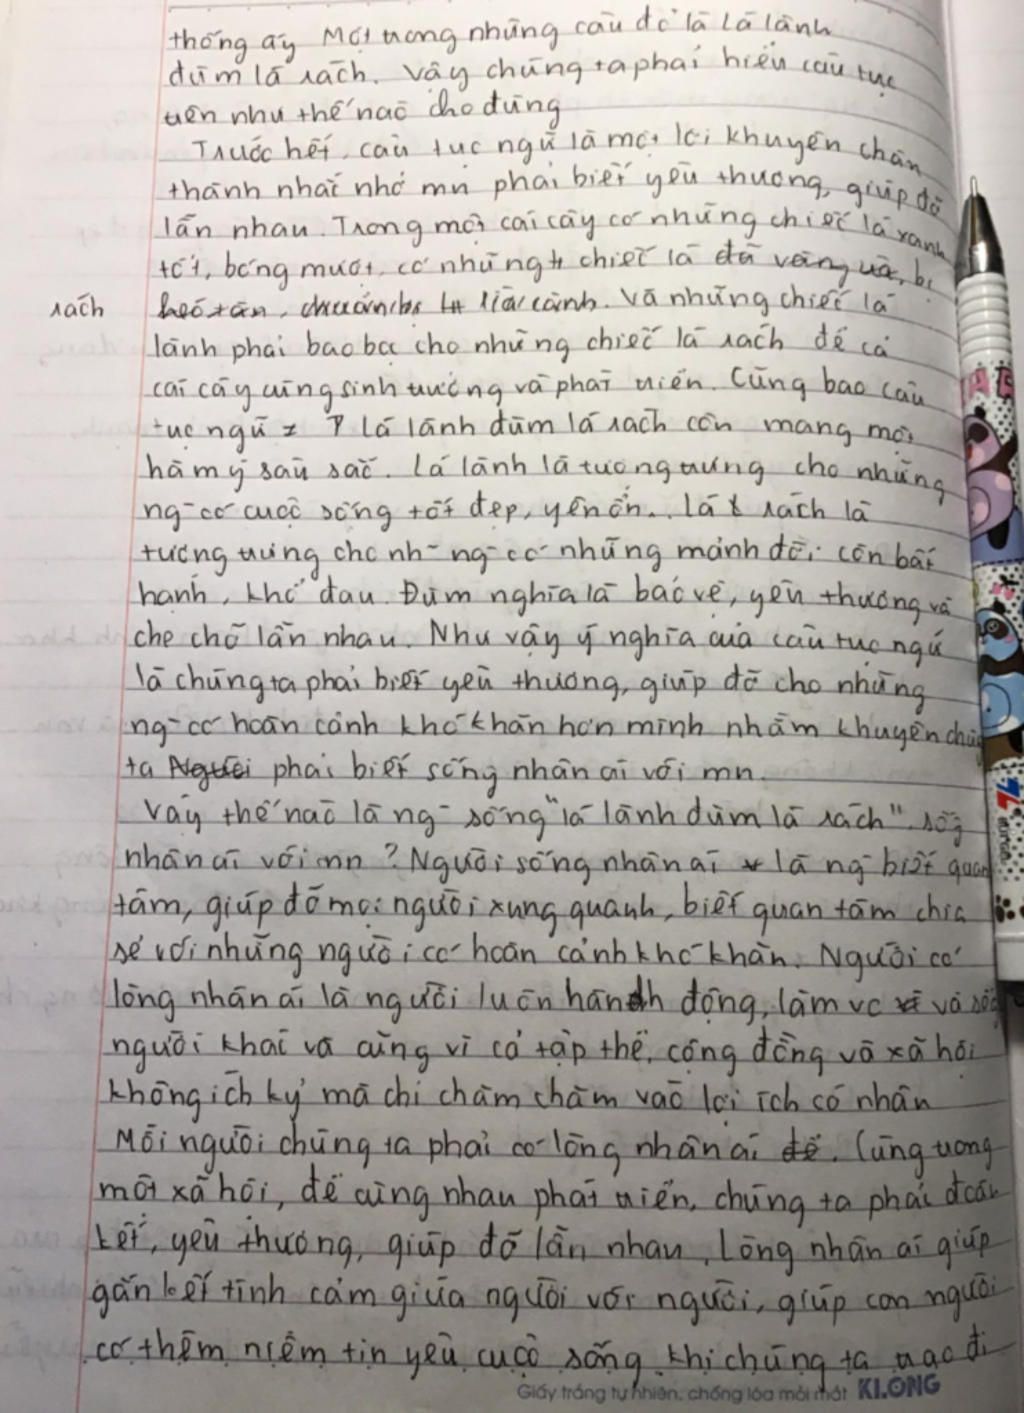 thống ấy Một trong những câu đó là Lá lành
đùm lá rách. Vậy chúng ta phải hiểu câu tục
trên như thế nào cho đúng
Trước hết, câu tục ngữ là một lời khuyên chân
thành nhắc nhở mn phải biết yêu thương, giúp đỡ
lẫn nhau. Trong một cái cây có những chiếc lá xanh
tốt, bóng mượt, có những chiếc lá đã vàng úa, bị
rách héo tàn, lìa cành. Và những chiếc lá
lành phải bao bọc cho những chiếc lá rách để cả
cái cây cùng sinh trưởng và phát triển. Cũng bao câu
tục ngữ ≠ Lá lành đùm lá rách còn mang một
hàm ý sâu sắc. Lá lành là tượng trưng cho những
ng- có cuộc sống tốt đẹp, yên ổn.. lá rách là
tượng trưng cho nh- ng- có những mảnh đời còn bất
hạnh, khổ đau. Đùm nghĩa là bảo vệ, yêu thương và
che chở lẫn nhau. Như vậy ý nghĩa của câu tục ngữ
là chúng ta phải biết yêu thương, giúp đỡ cho những
ng- có hoàn cảnh khó khăn hơn mình nhằm khuyên chúng
ta phải biết sống nhân ái với mn.
Vậy thế nào là ng- sống "lá lành đùm lá rách". sống
nhân ái với mn ? Người sống nhân ái là ng- biết quan
tâm, giúp đỡ mọi người xung quanh, biết quan tâm chia
sẻ với những người có hoàn cảnh khó khăn. Người có
lòng nhân ái là người luôn hành động, làm vc và số
người khác và cũng vì cả tập thể, cộng đồng và xã hội
không ích kỷ mà chỉ chăm chăm vào lợi ích cá nhân
Mỗi người chúng ta phải có lòng nhân ái. Cùng trong
một xã hội, để cùng nhau phát triển, chúng ta phải đoàn
kết, yêu thương, giúp đỡ lẫn nhau. Lòng nhân ái giúp
gắn kết tình cảm giữa người với người, giúp con người
có thêm niềm tin yêu cuộc sống khi chúng ta trao đi
Giấy trắng tự nhiên, chống lóa mỏi mắt KLONG